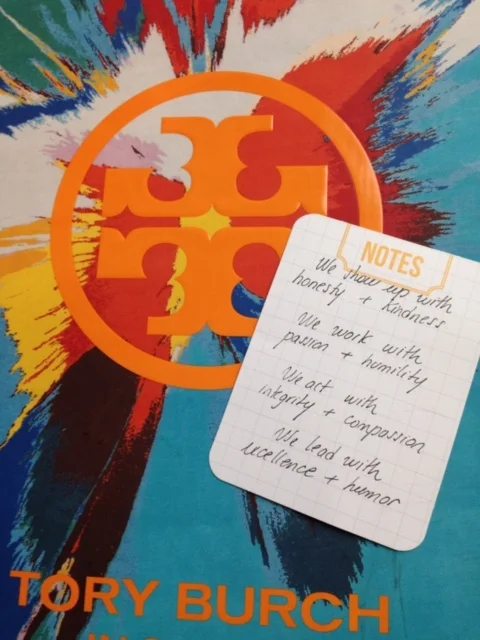 NOTES
We show up with
honesty + kindness
We work with
passion + humility
We act with
integrity + compassion
We lead with
excellence + humor
TORY BURCH
IN